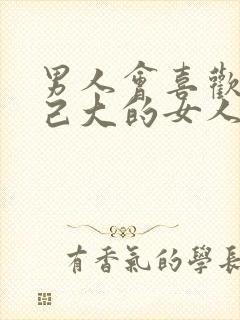 男人會喜歡
己大的女人
有香氣的學長